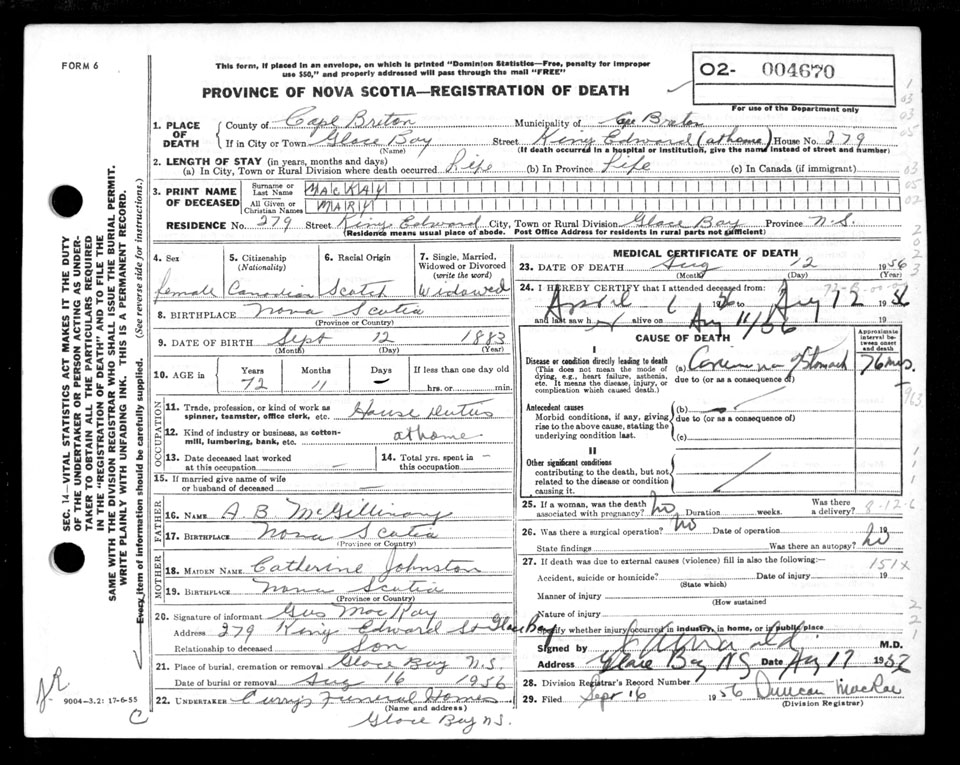 FORM 6
This form, if placed in an envelope, on which is printed "Dominion Statistics—Free, penalty for improper
use $50," and properly addressed will pass through the mail "FREE"
PROVINCE OF NOVA SCOTIA—REGISTRATION OF DEATH
O2- 004670
For use of the Department only
1. PLACE OF DEATH County of Cape Breton Municipality of Cape Breton
If in City or Town Glace Bay Street King Edward (at home) House No. 279
(Name) (If death occurred in a hospital or institution, give the name instead of street and number)
2. LENGTH OF STAY (in years, months and days)
(a) In City, Town or Rural Division where death occurred Life (b) In Province Life (c) In Canada (if immigrant)
3. PRINT NAME OF DECEASED Surname or Last Name MACKAY
All Given or Christian Names MARY
RESIDENCE No. 279 Street King Edward City, Town or Rural Division Glace Bay Province N.S.
(Residence means usual place of abode. Post Office Address for residents in rural parts not sufficient)
4. Sex 5. Citizenship (Nationality) 6. Racial Origin 7. Single, Married, Widowed or Divorced (write the word)
female Canadian Scotch Widowed
8. BIRTHPLACE Nova Scotia
(Province or Country)
9. DATE OF BIRTH Sept 12 1883
(Month) (Day) (Year)
10. AGE in Years Months Days If less than one day old
72 11 — hrs. or min.
OCCUPATION
11. Trade, profession, or kind of work as spinner, teamster, office clerk, etc. House Duties
12. Kind of industry or business, as cotton-mill, lumbering, bank, etc. at home
13. Date deceased last worked at this occupation — 14. Total yrs. spent in this occupation —
15. If married give name of wife or husband of deceased —
FATHER
16. NAME A B McGillivary
17. BIRTHPLACE Nova Scotia
(Province or Country)
MOTHER
18. MAIDEN NAME Catherine Johnston
19. BIRTHPLACE Nova Scotia
(Province or Country)
20. Signature of informant Gus MacKay
Address 279 King Edward St Glace Bay
Relationship to deceased Son
21. Place of burial, cremation or removal Glace Bay N.S.
Date of burial or removal Aug 16 1956
22. UNDERTAKER Curry's Funeral Home
(Name and address)
Glace Bay N.S.
MEDICAL CERTIFICATE OF DEATH
23. DATE OF DEATH Aug 12 1956
(Month) (Day) (Year)
24. I HEREBY CERTIFY that I attended deceased from:
April 1956 to Aug 12 1956
and last saw her alive on Aug 11/56
CAUSE OF DEATH
Approximate interval between onset and death
I
Disease or condition directly leading to death
(This does not mean the mode of dying, e.g., heart failure, asthenia, etc. It means the disease, injury, or complication which caused death.)
(a) Stomach mos.
due to (or as a consequence of)
Antecedent causes
Morbid conditions, if any, giving rise to the above cause, stating the underlying condition last.
(b)
due to (or as a consequence of)
(c)
II
Other significant conditions
contributing to the death, but not related to the disease or condition causing it.
25. If a woman, was the death associated with pregnancy? no Duration weeks. Was there a delivery?
26. Was there a surgical operation? no Date of operation 19
State findings Was there an autopsy? no
27. If death was due to external causes (violence) fill in also the following:—
151X
Accident, suicide or homicide? Date of injury 19
(State which)
Manner of injury
(How sustained
Nature of injury
Specify whether injury occurred in industry, in home, or in public place
Signed by M.D.
Address Glace Bay NS Date Aug 17 195
28. Division Registrar's Record Number
29. Filed Sept 16 1956 Duncan MacRae
(Division Registrar)
SEC. 14—VITAL STATISTICS ACT MAKES IT THE DUTY
OF THE UNDERTAKER OR PERSON ACTING AS UNDER-
TAKER TO OBTAIN ALL THE PARTICULARS REQUIRED
IN THE "REGISTRATION OF DEATH" AND TO FILE THE
SAME WITH THE DIVISION REGISTRAR WHO SHALL ISSUE THE BURIAL PERMIT.
WRITE PLAINLY WITH UNFADING INK. THIS IS A PERMANENT RECORD.
Every item of information should be carefully supplied. (See reverse side for instructions.)
9004-3.2: 17-6-55